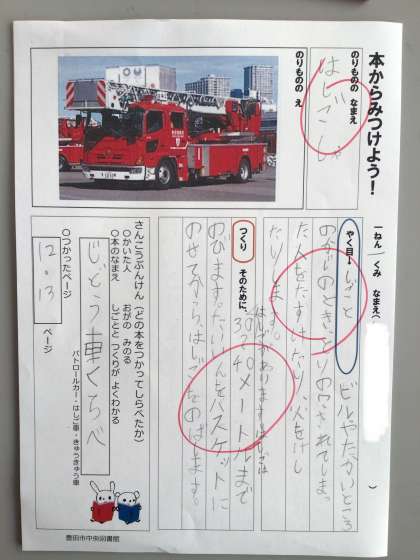 本からみつけよう！
一ねん　くみ　なまえ（　）
のりものの　なまえ
はしごしゃ
のりものの　え
やく目→しごと
ビルやたかいところ
のかじのときとりのこされてしまっ
た人をたすけたり、火をけし
たりします。
つくり　そのために、
はしごがあります。はしごは
30〜40メートルまで
のびます。たいいんをバスケットに
のせてから、はしごをのばします。
さんこうぶんけん（どの本をつかってしらべたか）
○かいた人　おがの　みのる
○本のなまえ　しごとと　つくりが　よくわかる
じどう車くらべ
パトロールカー・はしご車・きゅうきゅう車
○つかったページ
12.13
ページ
豊田市中央図書館